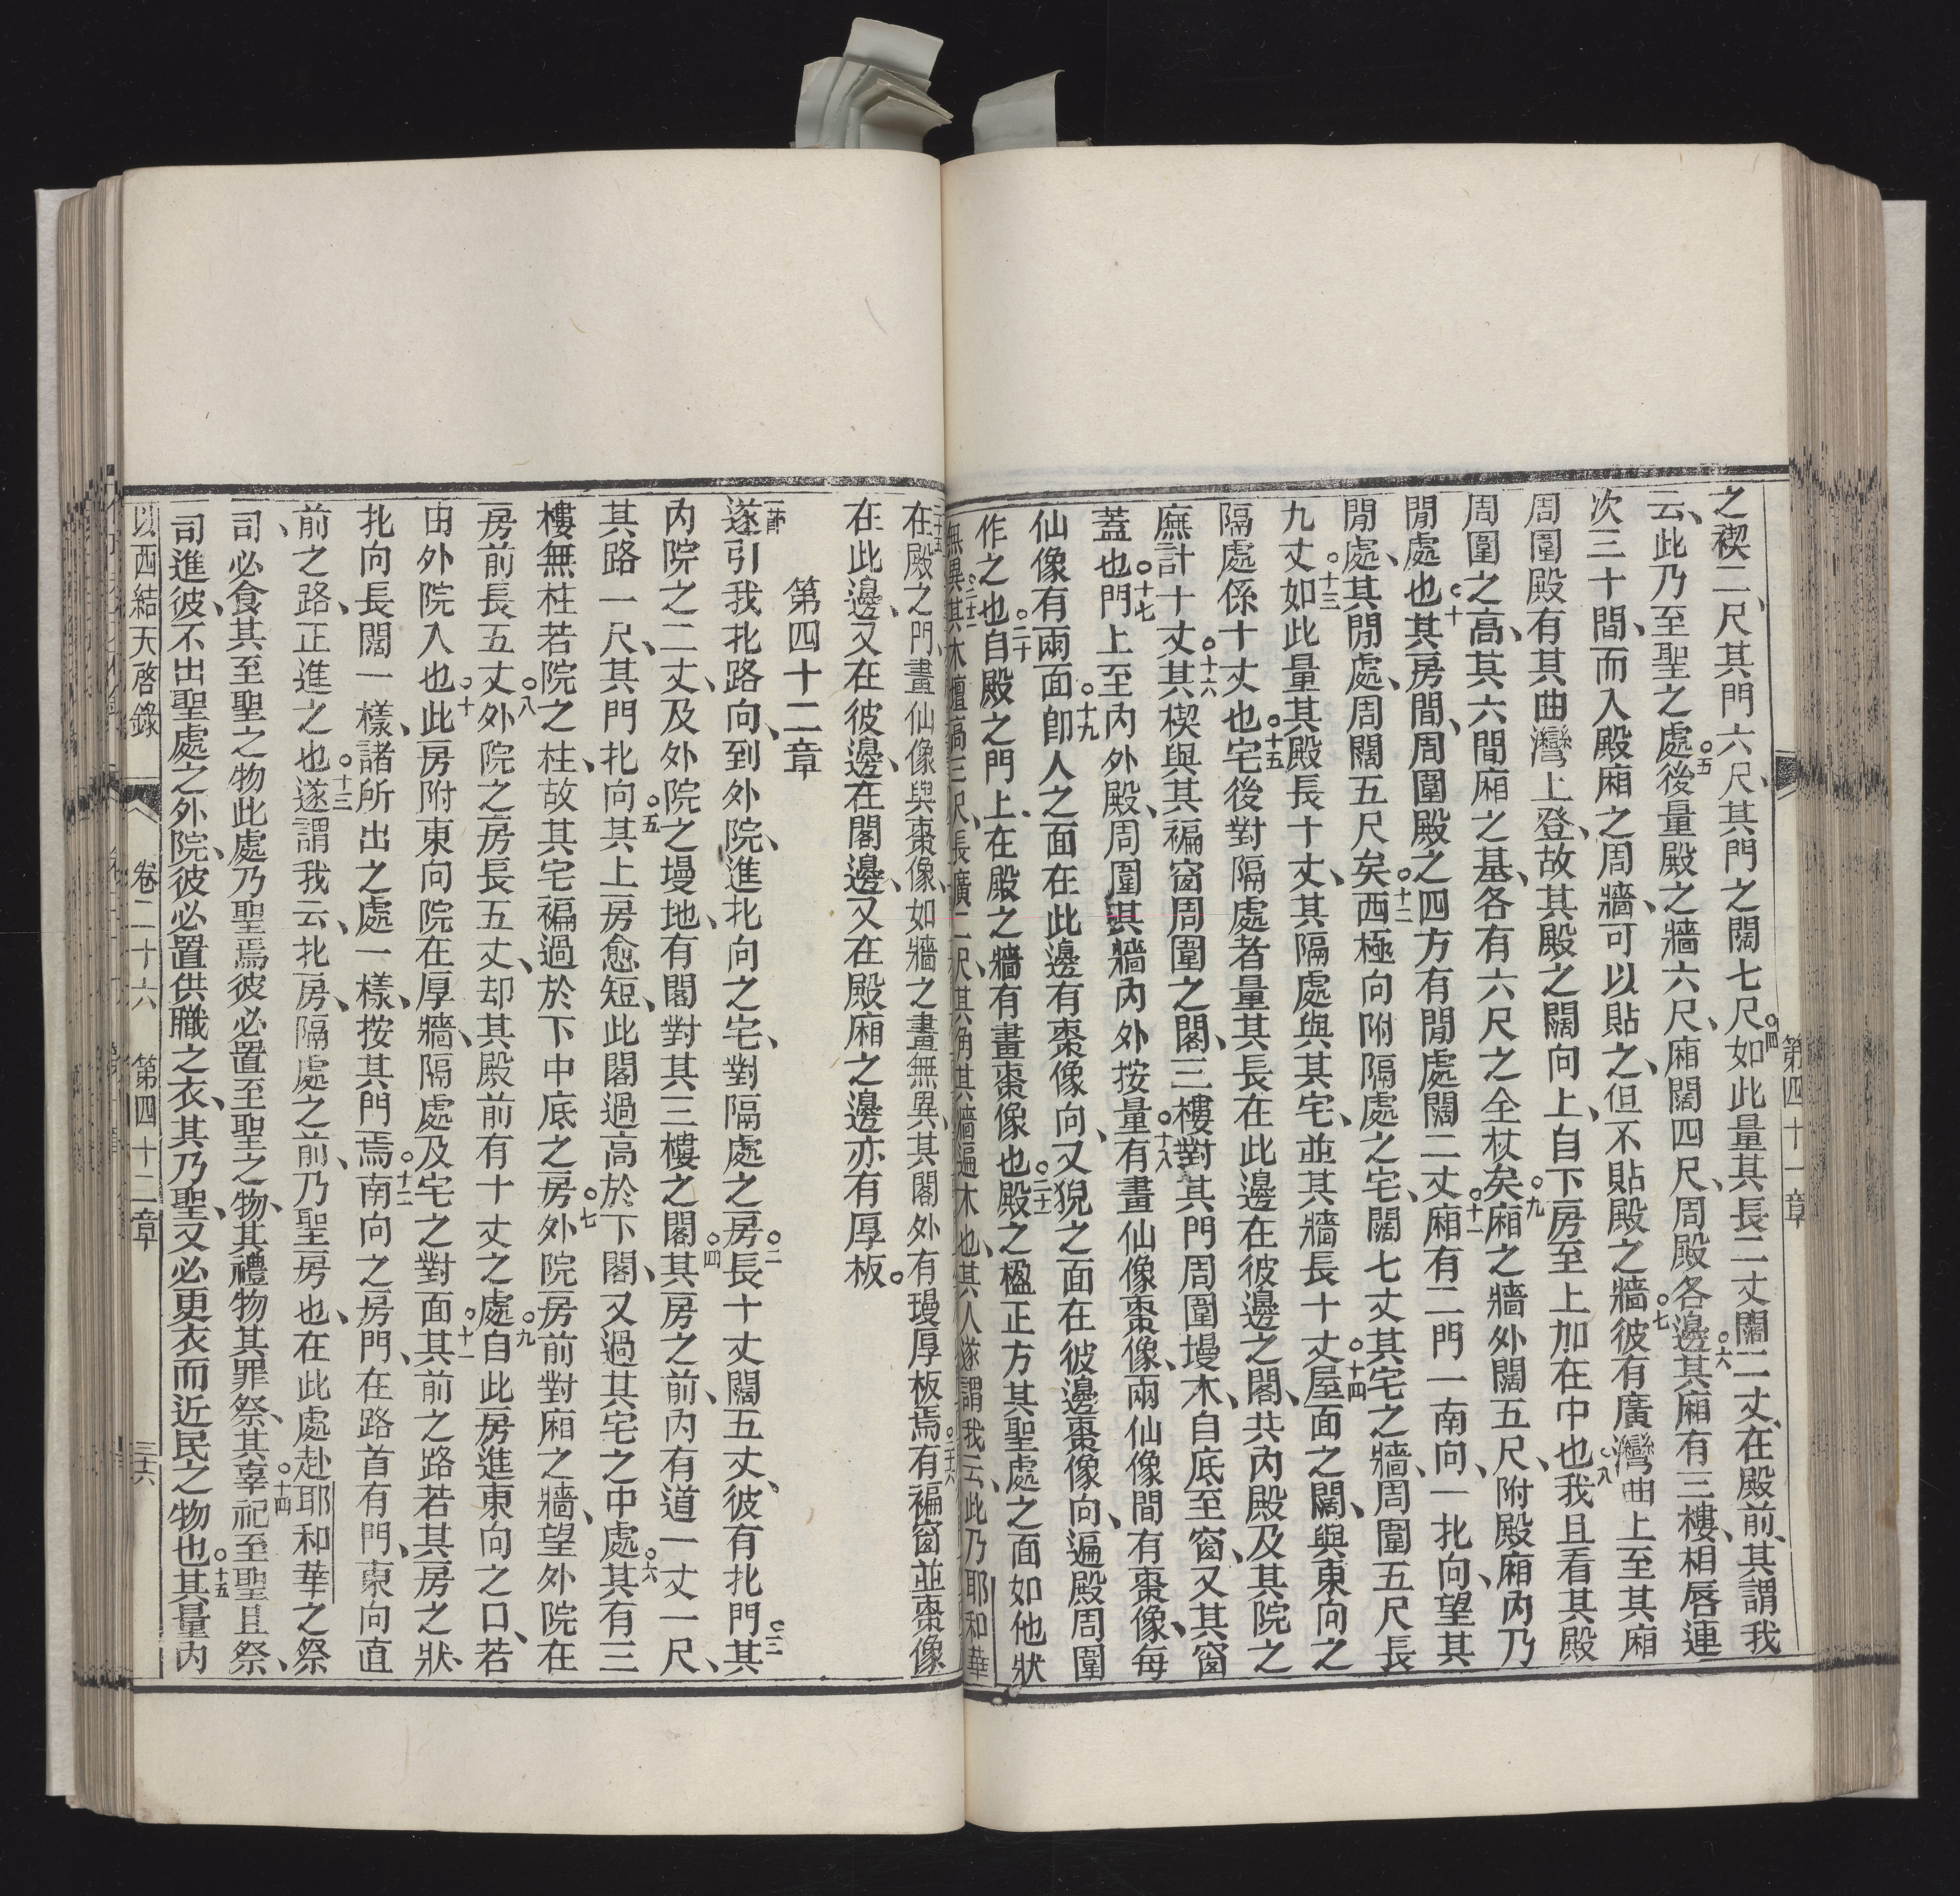 第四十一章
之楔二尺、其門六尺、其門之闊七尺○四如此量其長二丈闊二丈、在殿前、其謂我
云、此乃至聖之處○五後量殿之牆六尺、廂闊四尺、周殿各邊○六其廂有三樓、相唇連
次三十間、而入殿廂之周牆、可以貼之、但不貼殿之牆○七彼有廣灣曲上至其廂
周圍殿有其曲灣上登、故其殿之闊向上、自下房至上加在中也○八我且看其殿
周圍之高、其六間廂之基、各有六尺之全杖矣○九廂之牆外闊五尺、附殿廂內乃
閒處也○十其房間、周圍殿之四方有閒處闊二丈○十一廂有二門一南向、一北向、望其
閒處、其閒處、周闊五尺矣○十二西極向附隔處之宅、闊七丈其宅之牆、周圍五尺長
九丈○十三如此量其殿長十丈、其隔處與其宅、並其牆長十丈○十四屋面之闊、與東向之
隔處係十丈也○十五宅後對隔處者量其長在此邊在彼邊之閣、共內殿及其院之
廡計十丈○十六其楔與其褊窗周圍之閣、三樓對其門周圍墁木、自底至窗、又其窗
蓋也○十七門上至內外殿、周圍其牆內外按量○十八有畫仙像棗像、兩仙像間有棗像、每
仙像有兩面○十九卽人之面在此邊有棗像向、又猊之面在彼邊棗像向、遍殿周圍
作之也○二十自殿之門上、在殿之牆有畫棗像也○二十一殿之楹正方其聖處之面如他狀
無異○二十二其木壇高三尺、長廣二尺、其角其牆遍木也、其人遂謂我云、此乃耶和華
在殿之門、畫仙像與棗像、如牆之畫無異、其閣外有墁厚板焉○二十六有褊窗並棗像
在此邊、又在彼邊、在閣邊、又在殿廂之邊亦有厚板○
第四十二章
一節遂引我北路向、到外院、進北向之宅、對隔處之房○二長十丈闊五丈、彼有北門○三其
內院之二丈、及外院之墁地、有閣對其三樓之閣○四其房之前、內有道一丈一尺、
其路一尺、其門北向○五其上房愈短、此閣過高於下閣、又過其宅之中處○六其有三
樓無柱若院之柱、故其宅褊過於下中底之房○七外院房前對廂之牆、望外院在
房前長五丈○八外院之房長五丈、却其殿前有十丈之處○九自此房進東向之口、若
由外院入也○十此房附東向院在厚牆、隔處及宅之對面○十一其前之路若其房之狀、
北向長闊一樣、諸所出之處一樣、按其門焉○十二南向之房門、在路首有門、東向直
前之路、正進之也○十三遂謂我云、北房、隔處之前、乃聖房也、在此處赴耶和華之祭
司、必食其至聖之物此處乃聖焉彼必置至聖之物、其禮物其罪祭、其辜祀至聖且祭、
司進彼、不出聖處之外院、彼必置供職之衣、其乃聖、又必更衣而近民之物也○十五其量內
以西結天啓錄 卷二十六 第四十二章 三六